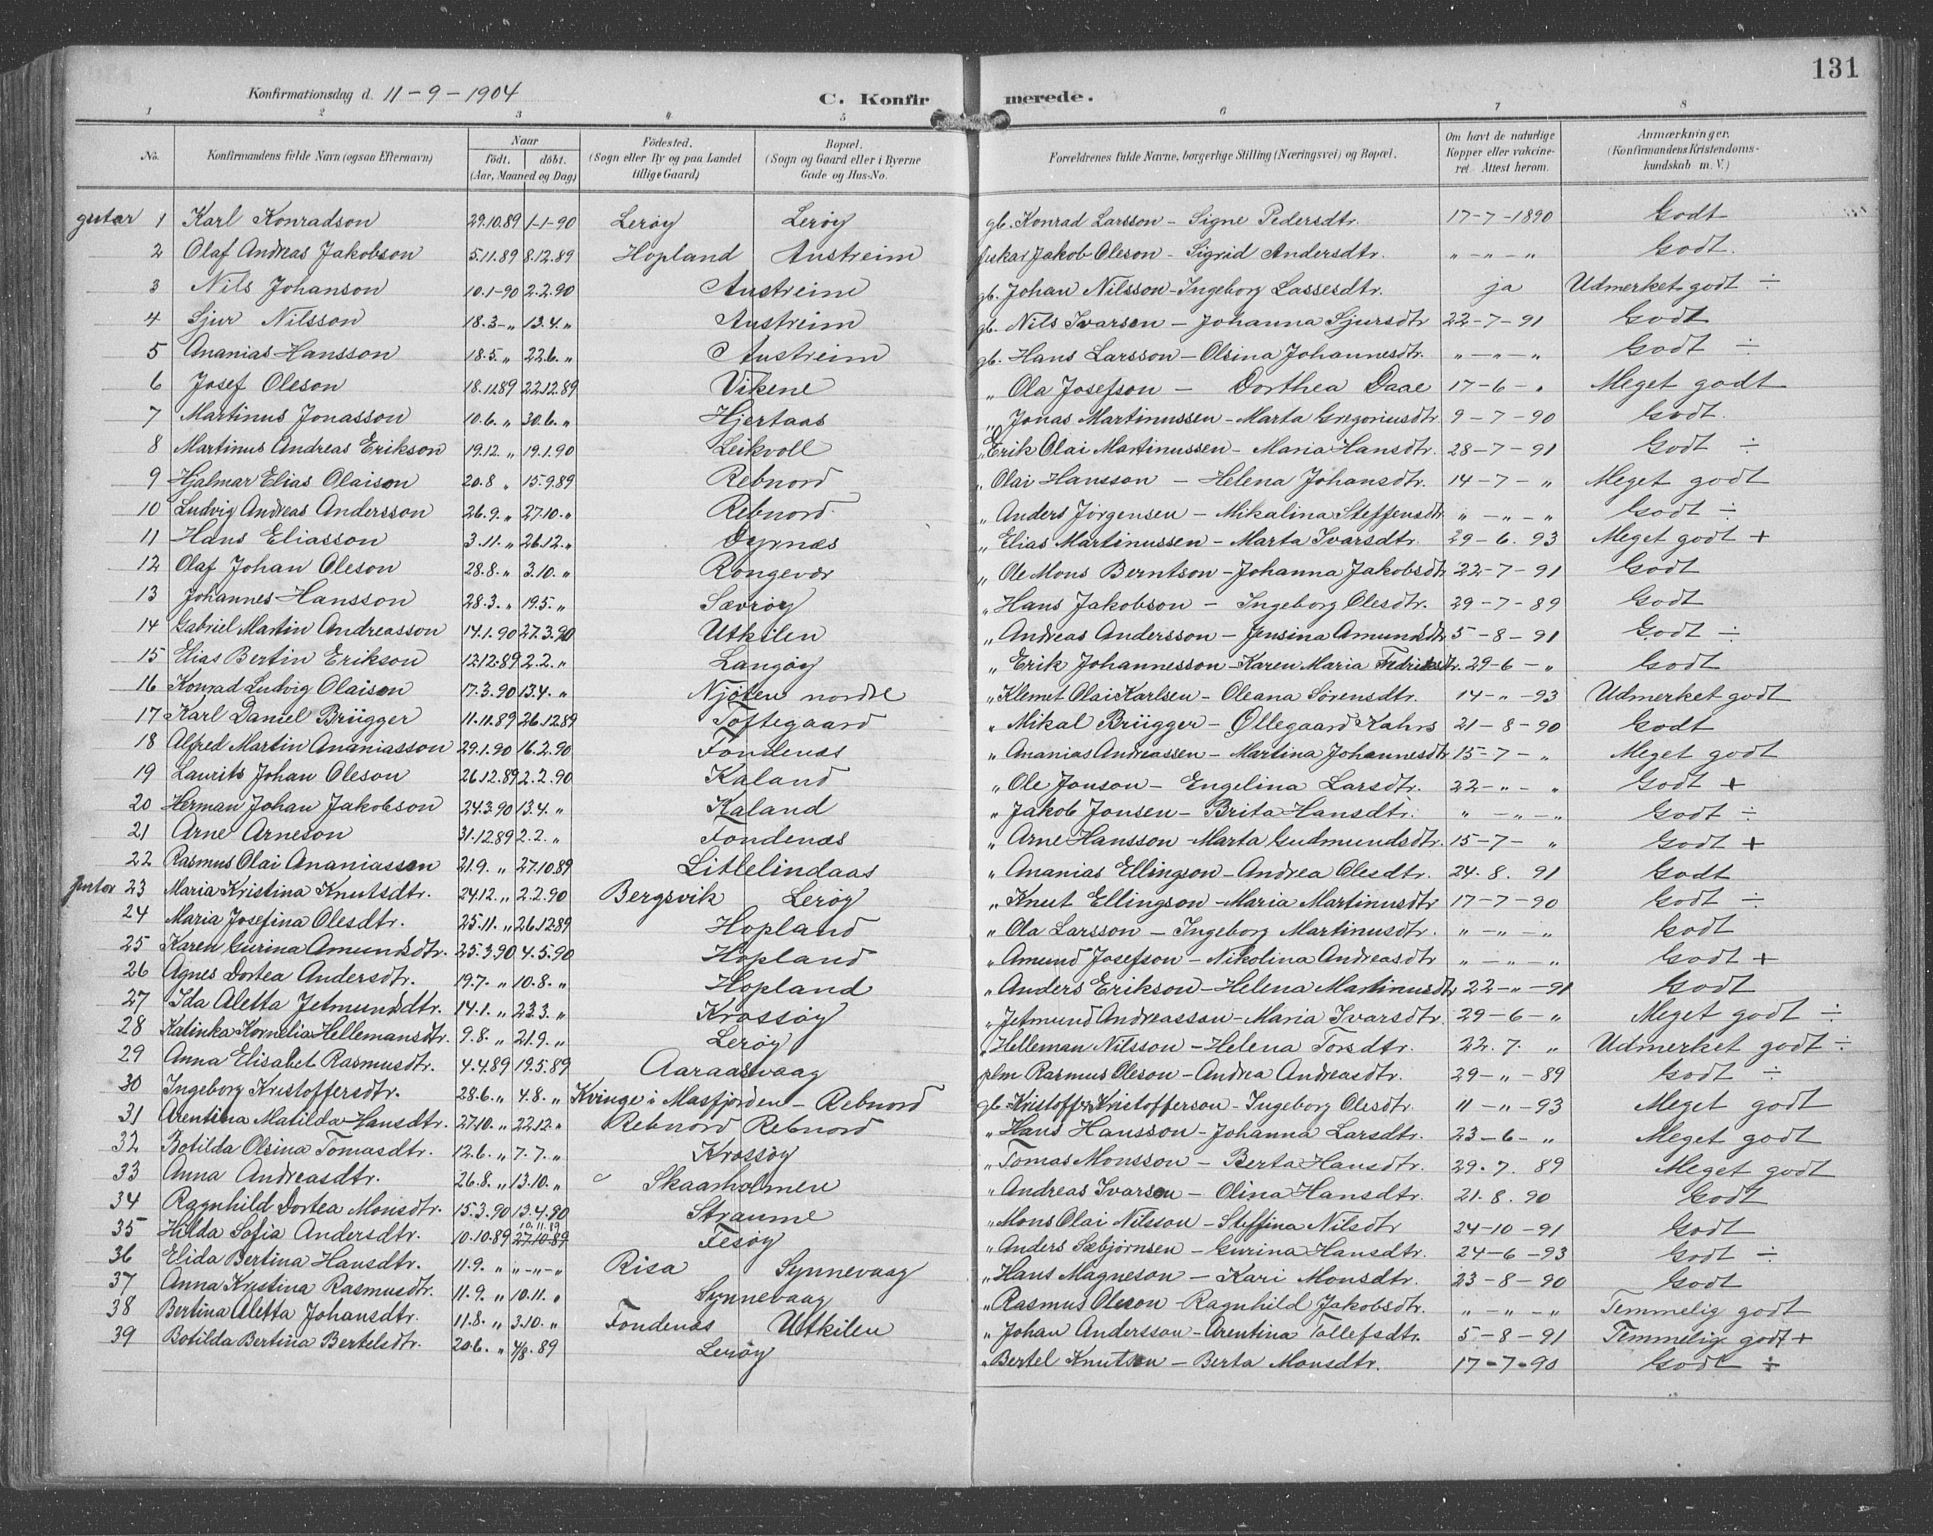 131
Konfirmationsdag d. 11-9-1904 C. Konfirmerede.
1 2 3 4 5 6 7 8
No. Konfirmandens fulde Navn (ogsaa Efternavn) Naar födt. döbt. (Aar, Maaned og Dag) Födested. (Sogn eller By og paa Landet tillige Gaard) Bopæl. (Sogn og Gaard eller i Byerne Gade og Hus-No. Forældrenes fulde Navne, borgerlige Stilling (Næringsvei) og Bopæl. Om havt de naturlige Kopper eller vakcineret. Attest herom. Anmærkninger. (Konfirmandens Kristendomskundskab m. V.)
gutar 1 Karl Konradson 29.10.89 1-1-90 Lerøy Lerøy gb. Konrad Larsson - Signe Pedersdtr. 17-7-1890 Godt
2 Olaf Andreas Jakobson 5.11.89 8.12.89 Hopland Austreim fiskar Jakob Oleson - Sigrid Andersdtr. " - " - " Godt.
3 Nils Johanson 10.1-90 2.2.90 Austreim gb. Johan Nilsson - Ingeborg Lassesdtr. ja Udmerket godt ÷
4 Sjur Nilsson 18.3-" 13.4. " Austreim gb. Nils Ivarson - Johanna Sjursdtr 22-7-91 Godt
5 Ananias Hansson 18.5. " 22.6. " Austreim gb. Hans Larsson - Olsina Johannesdtr. " - " - " Godt ÷
6 Josef Oleson 18.11.89 22.12.89 Vikene " Ola Josefson - Dorthea Daae 17-6-" Meget godt
7 Martinus Jonasson 10.6. " 30.6. " Hjertaas " Jonas Martinussen - Marta Gregoriusdtr 9-7-90 Godt.
8 Martinus Andreas Erikson 19.12 " 19.1.90 Leikvoll " Erik Olai Martinussen - Maria Hansdtr. 28-7-91 Godt ÷
9 Hjalmar Elias Olaison 20.8 " 15.9.89 Rebnord " Olai Hansson - Helena Johansdtr. 14-7-" Meget godt
10 Ludvig Andreas Andersson 26.9. " 27.10. " Rebnord " Anders Jørgensen - Mikalina Steffensdtr. " - " - " Godt ÷
11 Hans Eliasson 3.11. " 26.12. " Dyrnæs " Elias Martinussen - Marta Ivarsdtr. 29-6.93 Meget godt +
12 Olaf Johan Oleson 28.8. " 3.10. " Rongevær " Ole Mons Berntson - Johanna Jakobsdtr 22-7-91 Godt
13 Johannes Hansson 28.3. " 19.5. " Sævrøy " Hans Jakobson - Ingeborg Olesdtr. 29-7-89 Godt
14 Gabriel Martin Andreasson 14.1.90 27.3.90 Utkilen " Andreas Andersson - Jensina Amundsdtr 5-8-91 Godt ÷
15 Elias Bertin Erikson 12.12.89 2.2. " Langøy " Erik Johannesson - Karen Maria Fredriksdtr. 29-6-" Godt
16 Konrad Ludvig Olaison 17.3.90 13.4. " Njøten nordre " Klemet Olai Karlsen - Oleana Sørensdtr. 14-"-93 Udmerket godt
17 Karl Daniel Brügger 11.11.89 26.12.89 Toftegaard " Mikal Brügger - Øllegaard Kahrs 21-8-90 Godt
18 Alfred Martin Ananiasson 29.1.90 16.2.90 Fondenæs " Ananias Andreassen - Martina Johannesdtr 15-7-" Meget godt
19 Laurits Johan Oleson 26.12.89 2.2.90 Kaland " Ole Jonson - Engelina Larsdtr. 22-"-" Godt +
20 Herman Johan Jakobson 24.3.90 13.4. " Kaland " Jakob Jonsen - Brita Hansdtr. " - " - " Godt ÷
21 Arne Arneson 31.12.89 2.2. " Fondenæs " Arne Hansson - Marta Gudmundsdtr. 15-7-" Godt +
22 Rasmus Olai Ananiassen 21.9. " 27.10.89 Litlelindaas " Ananias Ellingson - Andrea Olesdtr. 24.8.91 Godt
jentor 23 Maria Kristina Knutsdtr. 24.12. " 2.2.90 Bergsvik Lerøy " Knut Ellingson - Maria Martinusdtr 17-7-90 Godt ÷
24 Maria Josefina Olesdtr. 25.11. " 26.12.89 Hopland " Ola Larsson - Ingeborg Martinusdtr. " - " - " Godt
25 Karen Gurina Amundsdtr. 25.3.90 4.5.90 Hopland " Amund Josefson - Nikolina Andreasdtr " - " - " Godt +
26 Agnes Dortea Andersdtr. 19.7. " 10.8. " Hopland " Anders Erikson - Helena Martinusdtr 22-"-91 Godt
27 Ida Aletta Jetmundsdtr. 14.1. " 23.3. " Krossøy " Jetmund Andreasson - Maria Ivarsdtr. 29-6-" Meget godt ÷
28 Katinka Kornelia Hellemansdtr. 9.8. " 21.9. " Lerøy " Helleman Nilsson - Helena Torsdtr. 22.7. " Udmerket godt ÷
29 Anna Elisabet Rasmusdtr. 4.4.89 19.5.89 Aaraasvaag plm Rasmus Oleson - Andrea Andreasdtr. 29-"-89 Godt ÷
30 Ingeborg Kristoffersdtr. 28.6. " 4.8. " Kvinge i Masfjorden - Rebnord gb. Kristoffer Kristofferson - Ingeborg Olesdtr. 11-"-93 Meget godt
31 Arentina Matilda Hansdtr. 27.10. " 22.12. " Rebnord Rebnord " Hans Hansson - Johanna Larsdtr. 23-6-" Meget godt
32 Botilda Olsina Tomasdtr. 12.6. " 7.7. " Krossøy " Tomas Monsson - Berta Hansdtr. 29.7.89 Meget godt
33 Anna Andreasdtr. 26.8. " 13.10. " Skaarholmen " Andreas Ivarson - Olina Hansdtr. 21.8.90 Godt
34 Ragnhild Dortea Monsdtr. 15.3.90 13.4.90 Straume " Mons Olai Nilsson - Steffina Nilsdtr 24-10-91 Godt
35 Hilda Sofia Andersdtr. 10.10.89 10.11.89 27.10.89 Fesøy " Anders Sæbjørnsen - Gurina Hansdtr. 24-6-93 Godt ÷
36 Elida Bertina Hansdtr. 11.9. " " - " - " Risa Synnevaag " Hans Magneson - Kari Monsdtr. 23-8-90 Godt
37 Anna Kristina Rasmusdtr. 11.9. " 10.11. " Synnevaag " Rasmus Oleson - Ragnhild Jakobsdtr. " - " - " Temmelig godt
38 Bertina Aletta Johansdtr. 11.8. " 3.10. " Fondenæs Utkilen " Johan Andersson - Arentina Tollefsdtr. 5-8-91 Temmelig godt +
39 Botilda Bertina Bertelsdtr. 20.6. " 4/8.89 Lerøy " Bertel Knutson - Berta Monsdtr. 17-7-90 Godt ÷